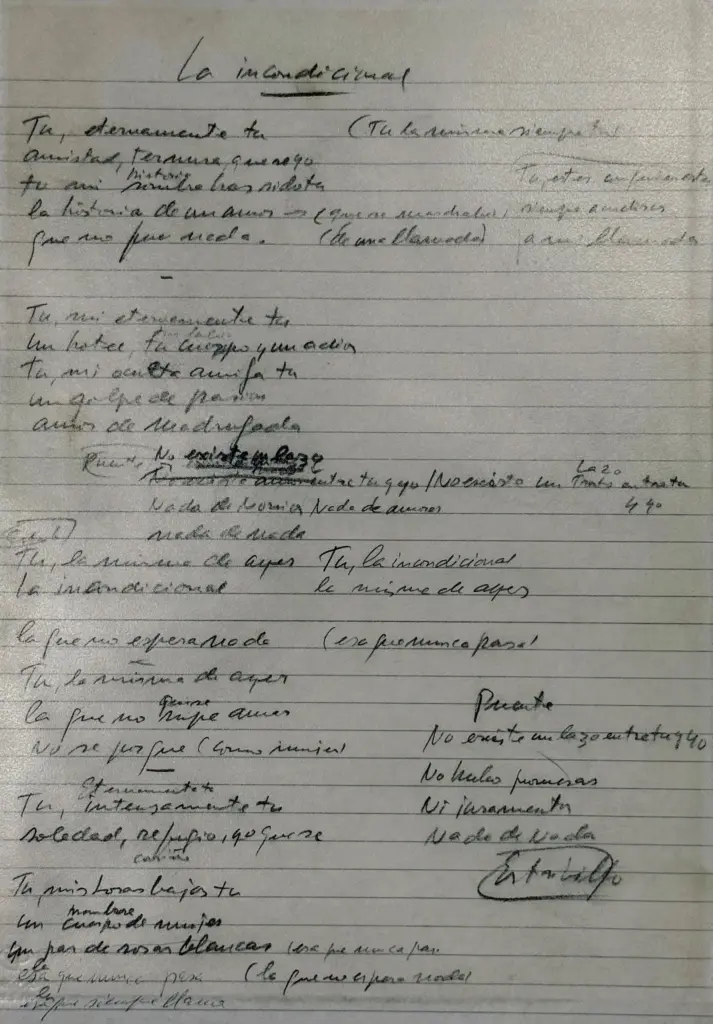 La incondicional
Tu, eternamente tu (Tu la misma siempre tu)
amistad, ternura, que se yo
historia
tu mi sombra has sido tu
la historia de un amor → siempre
que no fue nada. (de una llamada) a mi llamada
Tu, mi eternamente tu
un hotel, tu cuerpo y un adios
Tu, mi oculta amiga tu
un golpe de pasion
amor de madrugada
Puente No existe un lazo
lazo
No existe entre tu y yo / No existe un Trato entre tu
y yo
Nada de Nada de amores
nada de nada
Tu, la misma de ayer Tu, la incondicional
La incondicional la misma de ayer
la que no espera nada (esa que nunca pasa)
Tu, la misma de ayer
la que no supe amar Puente
No se porque (como mujer) No existe un lazo entre tu y yo
No hubo promesas
Eternamente tu Ni juramento
Tu, intensamente tu Nada de Nada
soledad, refugio, yo que se
cariño Estribillo
Tu, mis horas bajas tu
hombre
un cuerpo de mujer
un par de rosas blancas (esa que nunca pasa
esa que nunca pasa (la que no espera nada)
que siempre llama